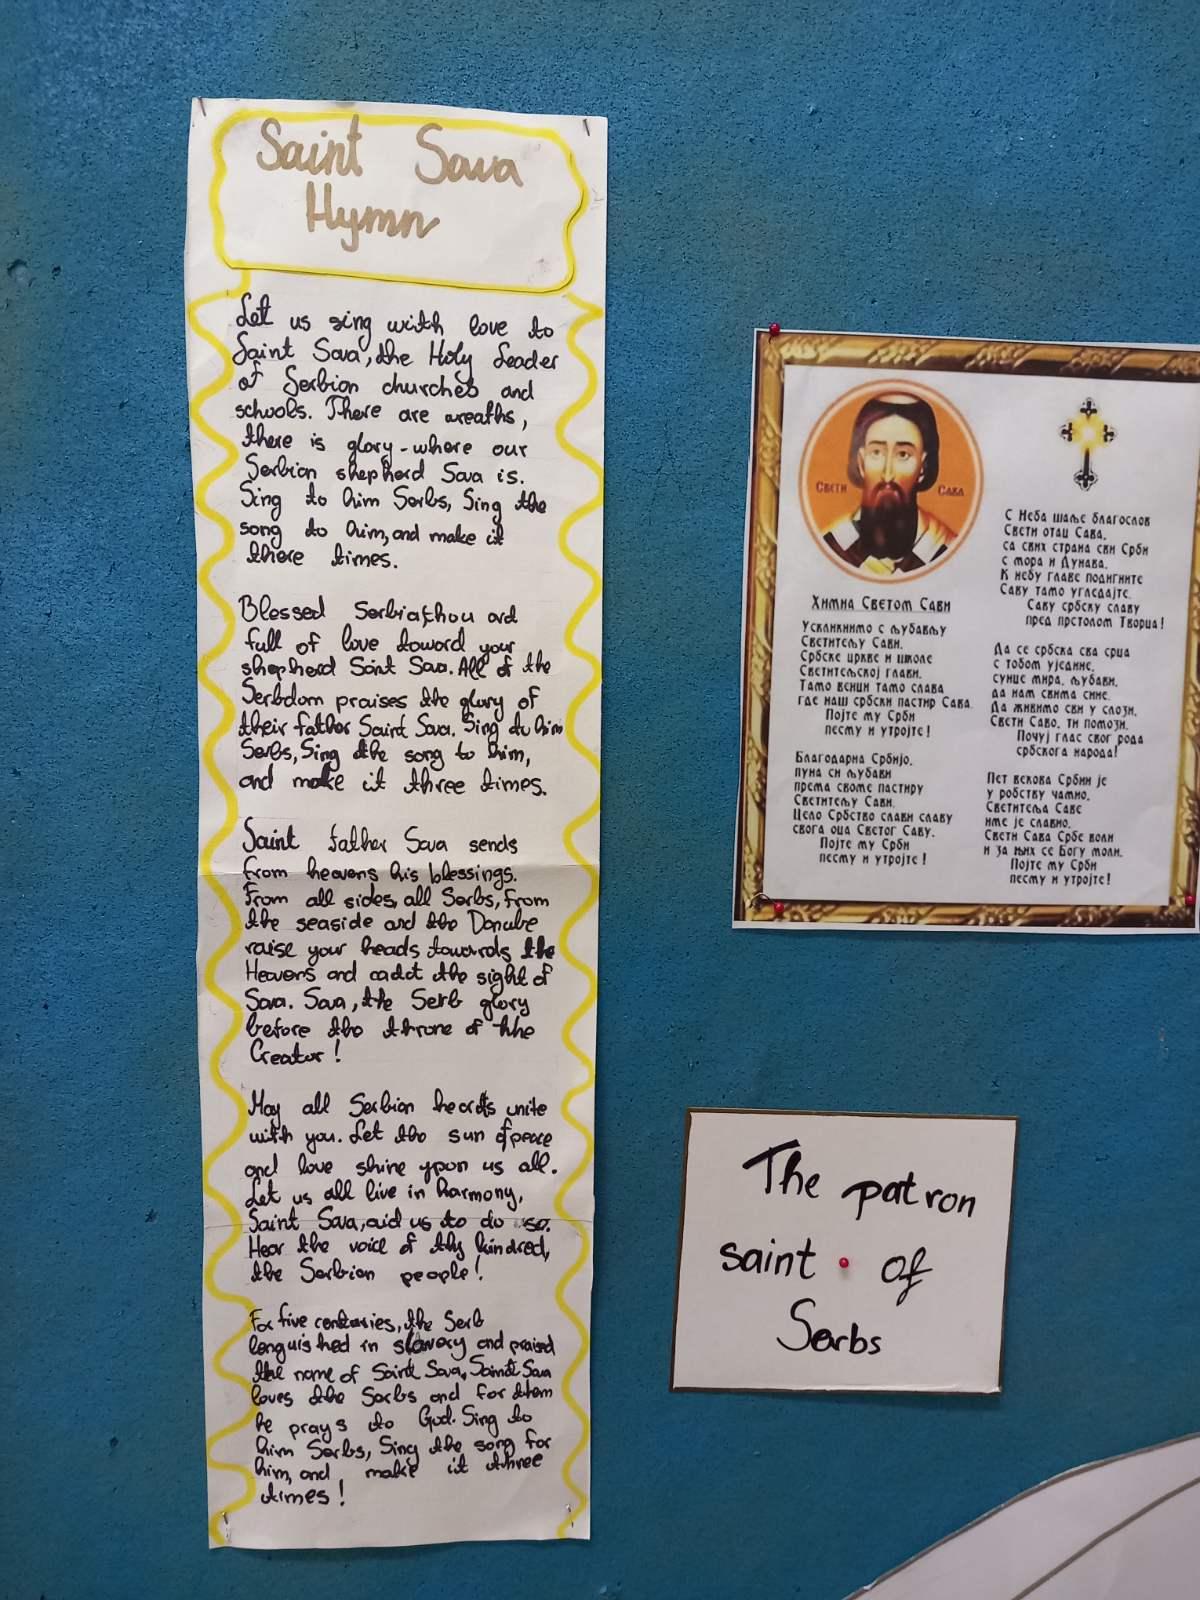 Saint Sava
Hymn
Let us sing with love to
Saint Sava, the Holy Leader
of Serbian churches and
schools. There are wreaths,
there is glory - where our
Serbian shepherd Sava is.
Sing to him Serbs, Sing the
song to him, and make it
there times.
Blessed Serbia, thou art
full of love toward your
shepherd Saint Sava. All of the
Serbdom praises the glory of
their father Saint Sava. Sing to him
Serbs, Sing the song to him,
and make it three times.
Saint father Sava sends
from heavens his blessings.
From all sides, all Serbs, from
the seaside and the Danube
raise your heads towards the
Heavens and the sight of
Sava. Sava, the Serb glory
before the throne of the
Creator!
May all Serbian hearts unite
with you. Let the sun of peace
and love shine upon us all.
Let us all live in harmony,
Saint Sava, aid us to do so.
Hear the voice of thy kindred,
the Serbian people!
For five centuries, the Serb
languished in slavery and praised
the name of Saint Sava. Saint Sava
loves the Serbs and for them
he prays to God. Sing to
him Serbs, Sing the song for
him, and make it three
times!
Свети Сава
Химна Светом Сави
Ускликнимо с љубављу
Светитељу Сави,
Српске цркве и школе
Светитељској глави.
Тамо венци тамо слава
где наш србски пастир Сава.
Појте му Срби
песму и утројте!
Благодарна Србијо,
пуна си љубави
према своме пастиру
Светитељу Сави.
Цело Србство слави славу
свога оца Светог Саву.
Појте му Срби
песму и утројте!
С Неба шаље благослов
Свети отац Сава,
са свих страна сви Срби
с мора и Дунава.
К небу главе подигните
Саву тамо угледајте.
Саву србску славу
пред престолом Творца!
Да се србска сва срца
с тобом уједине,
сунце мира, љубави,
да нам свима сине.
Да живимо сви у слози,
Свети Саво, ти помози.
Почуј глас свог рода
србскога народа!
Пет векова Србин је
у робству чамио,
Светитеља Саве
име је славио.
Свети Сава Србе воли
и за њих се Богу моли.
Појте му Срби
песму и утројте!
The patron
saint of
Serbs